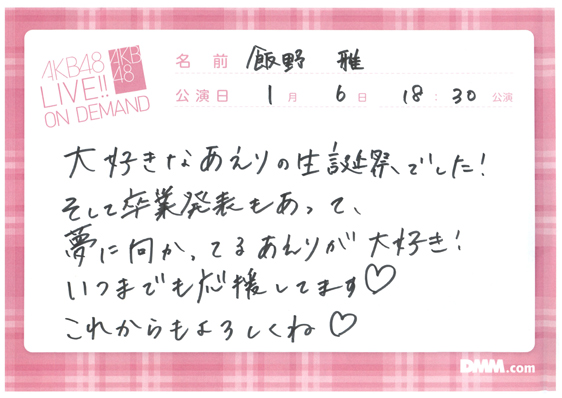 AKB48
LIVE!!
ON DEMAND
AKB
48
名前 飯野 雅
公演日 1月 6日 18:30 公演
大好きなあえりの生誕祭でした!
そして卒業発表もあって、
夢に向かってるあえりが大好き!
いつまでも応援してます♡
これからもよろしくね♡
DMM.com